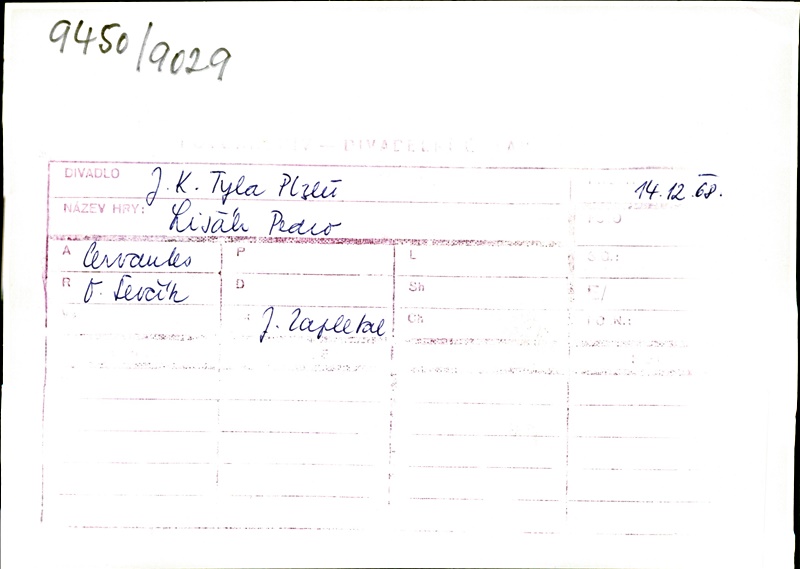 9450/9029
DIVADLO J. K. Tyla Plzeň 14.12.68.
NÁZEV HRY: Lišák Pedro
A Cervantes P L
R O. Ševčík D Sh
J. Zapletal Ch